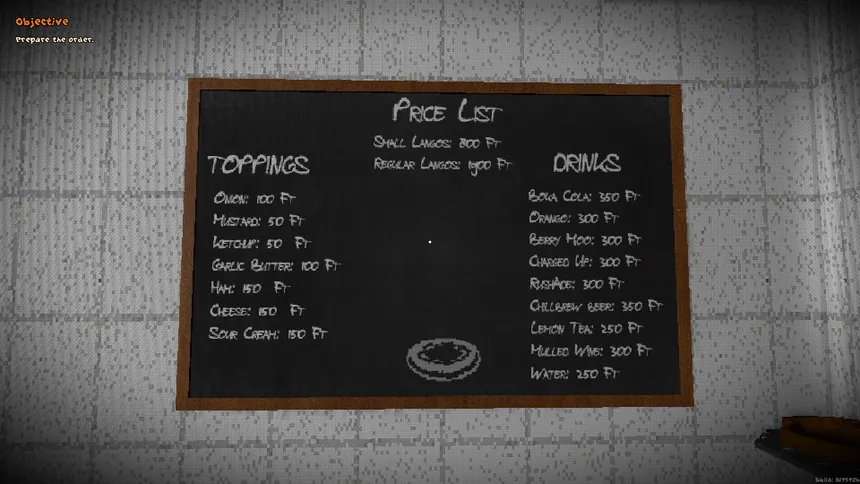 Objective
Prepare the order.
PRICE LIST
SMALL LANGOS: 800 FT
REGULAR LANGOS: FT
TOPPINGS
ONION: 100 FT
MUSTARD: 50 FT
KETCHUP: 50 FT
GARLIC BUTTER: 100 FT
HAM: 150 FT
CHEESE: 150 FT
SOUR CREAM: 150 FT
DRINKS
COLA: 350 FT
ORANGO: 300 FT
BERRY MOO: 300 FT
CHARGED UP: 300 FT
RUSHADE: 300 FT
CHILLBREW BEER: 350 FT
LEMON TEA: 250 FT
MULLED WINE: 300 FT
WATER: 250 FT